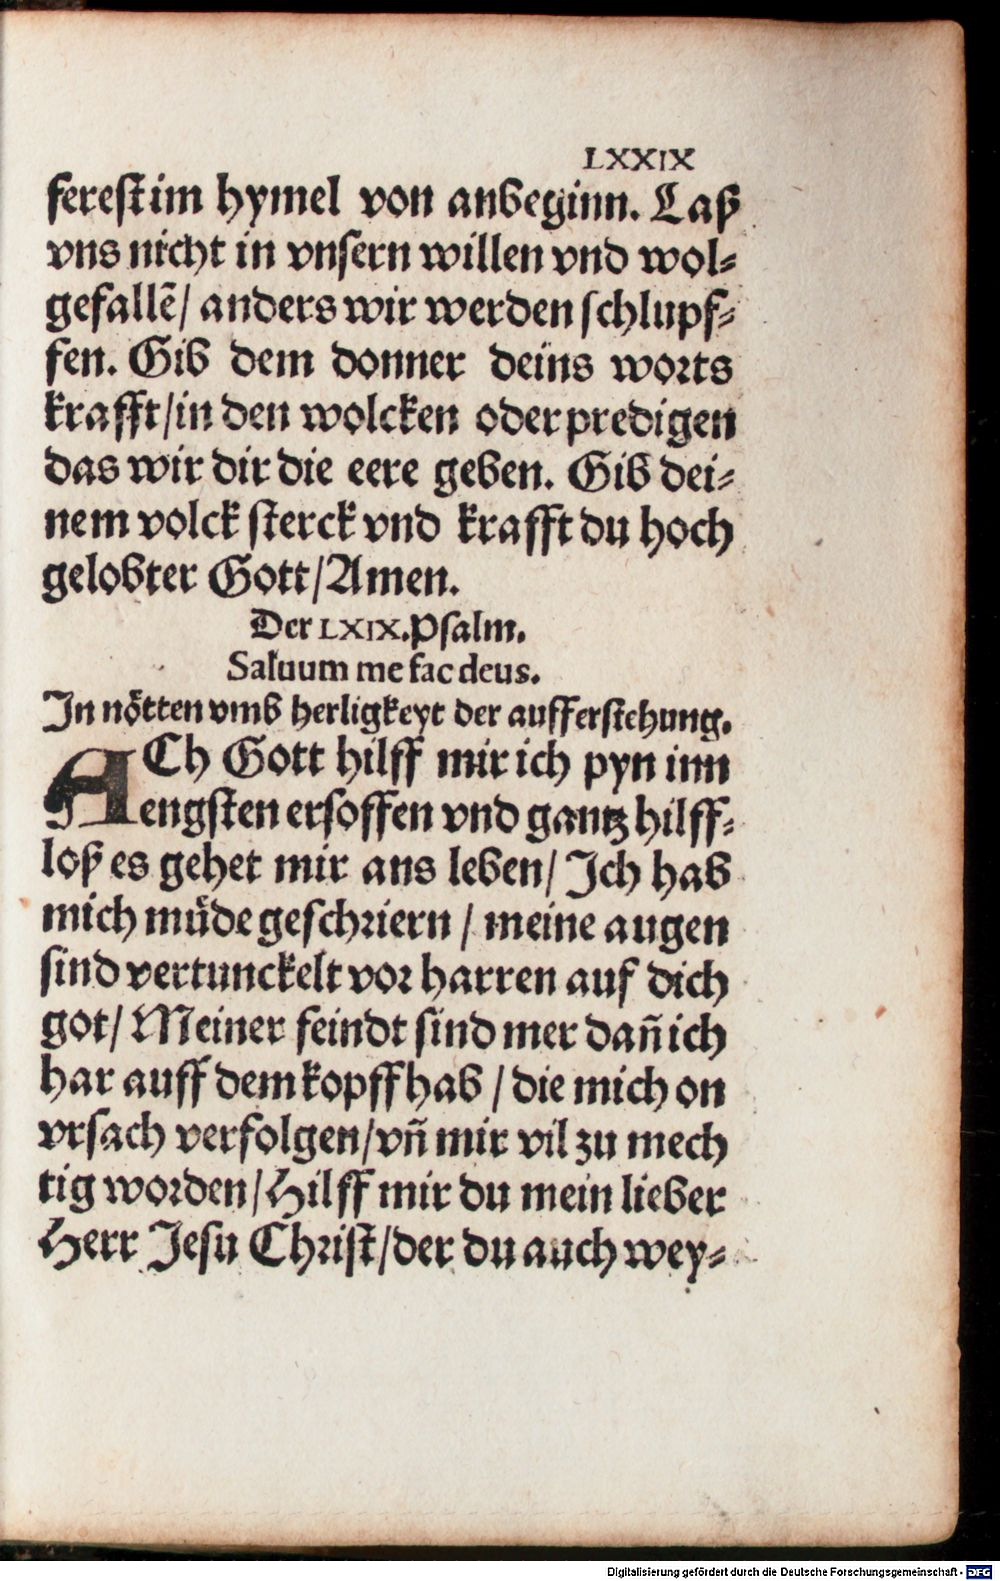 LXXIX
ferest im hymel von anbeginn. Laß
vns nicht in vnsern willen vnd wol⸗
gefallē/ anders wir werden schlupf⸗
fen. Gib dem donner deins worts
krafft/in den wolcken oder predigen
das wir dir die eere geben. Gib dei⸗
nem volck sterck vnd krafft du hoch
gelobter Gott/Amen.
Der LXIX.Psalm.
Saluum me fac deus.
In nötten vmb herligkeyt der aufferstehung.
ACh Gott hilff mir ich pyn inn
engsten ersoffen vnd gantz hilff⸗
loß es gehet mir ans leben/ Ich hab
mich müde geschriern / meine augen
sind vertunckelt vor harren auf dich
got/ Meiner feindt sind mer dañ ich
har auff dem kopff hab / die mich on
vrsach verfolgen/vñ mir vil zu mech
tig worden/Hilff mir du mein lieber
Herr Jesu Christ/der du auch wey⸗
Digitalisierung gefördert durch die Deutsche Forschungsgemeinschaft - DFG